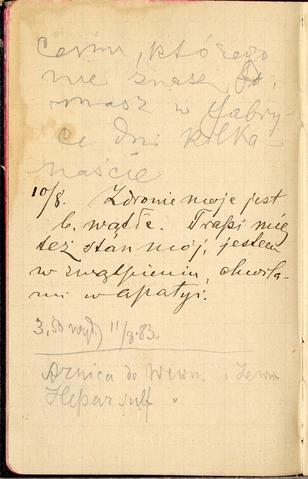 cemu, którego
nie znasz, Do,
masz w fabry-
ce dni kilka
naście
10/8. Zdrowie moje jest
b. wątłe. Trapi mię
też stan mój, jestem
w zwątpieniu, chwila-
mi w apatyi.
3,50 wyd) 11/8.83.
Arnica do wewn. i zewn
Hepar sulf.